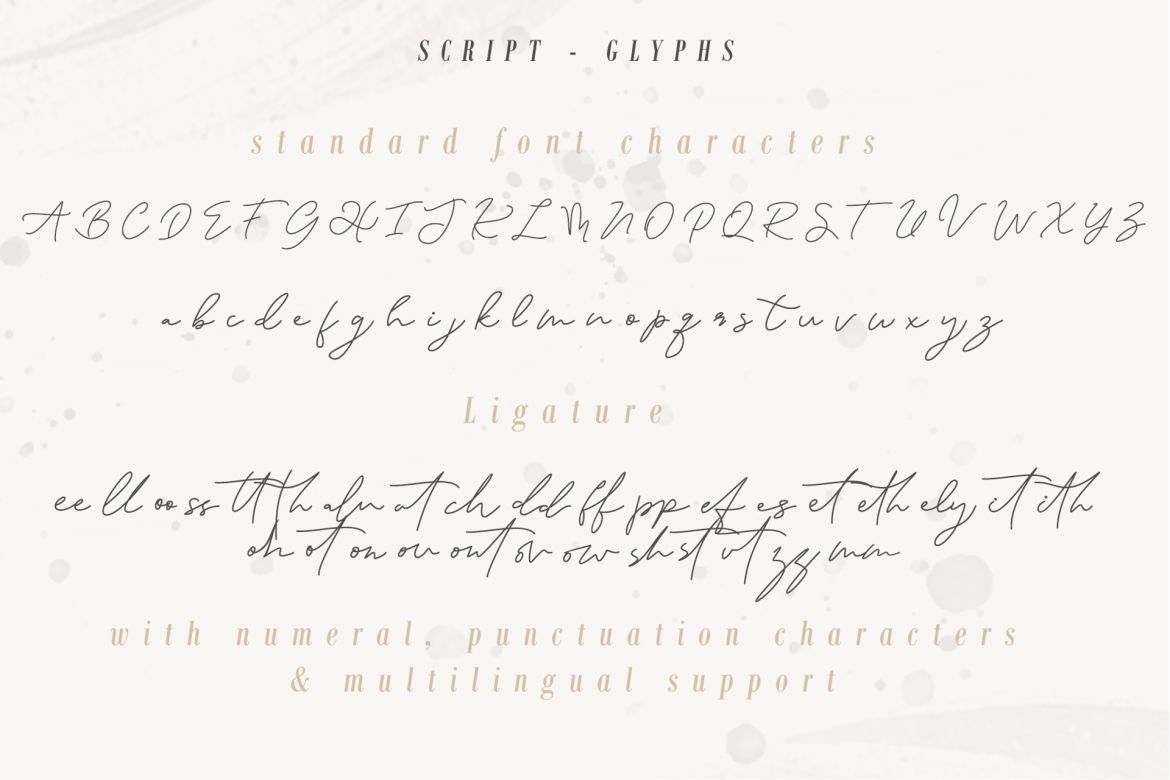 SCRIPT - GLYPHS
standard font characters
A B C D E F G H I J K L M N O P Q R S T U V W X Y Z
a b c d e f g h i j k l m n o p q r s t u v w x y z
Ligature
ee ll oo ss tt th al at ch dd ff pp ef es et eth ely it ith
oh ot on ou ov ow sh st zz mm
with numeral, punctuation characters
& multilingual support